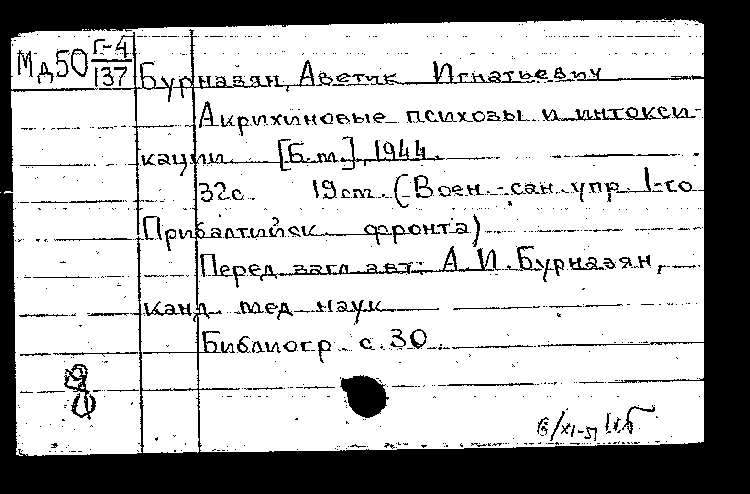 Мд50 Г-4/137
Бурназян, Аветик Игнатьевич
Акрихиновые психозы и интокси-
кации. [Б.м.], 1944.
32с. 19ст. (Воен.-сан. упр. 1-го
Прибалтийск. фронта)
Перед загл. авт.: А. И. Бурназян,
канд. мед. наук
Библиогр. с. 30